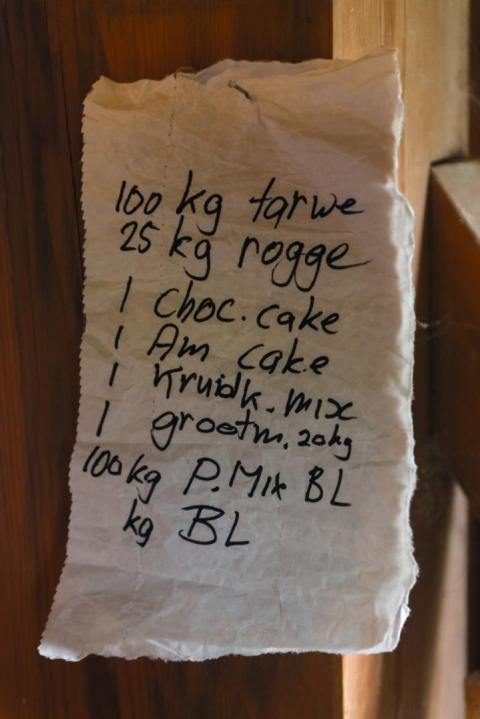 100 kg tarwe
25 kg rogge
1 Choc. cake
1 Am cake
1 Kruidk. mix
1 grootm. 20kg
100 kg P. Mix BL
kg BL